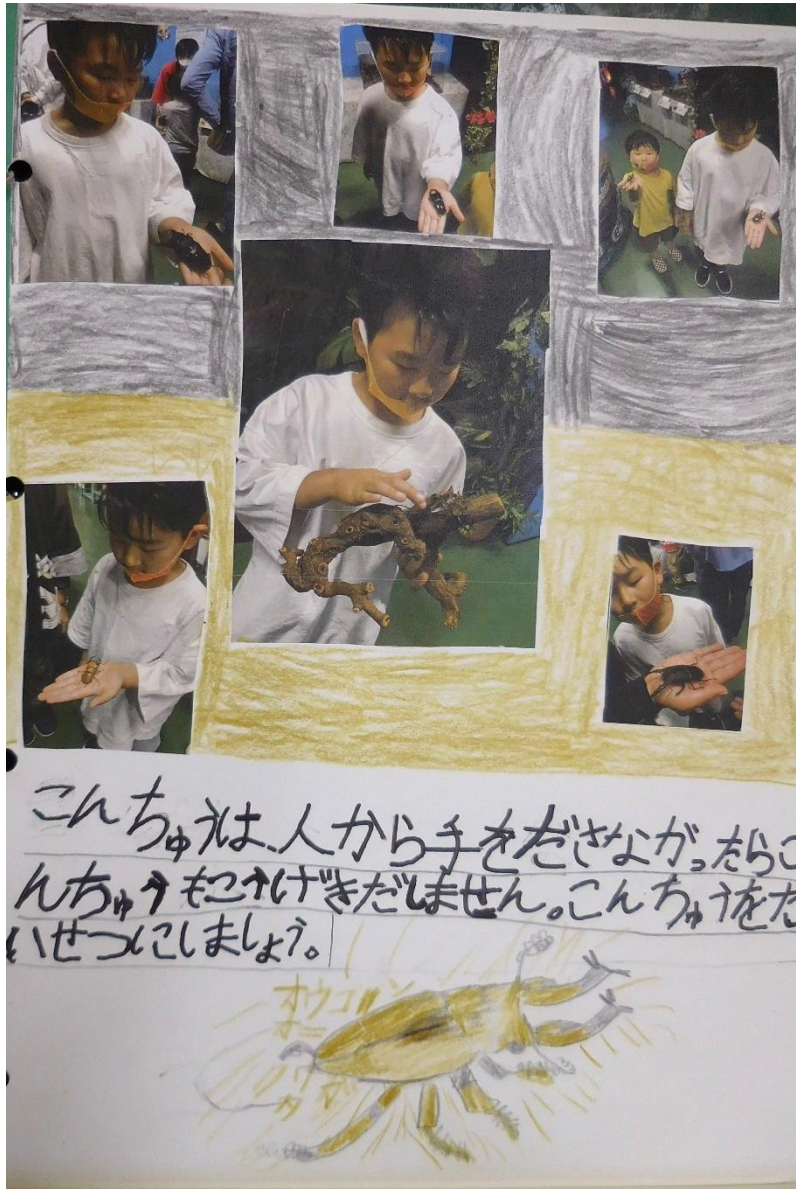 こんちゅうは、人から手をださなながったらこ
んちゅうもこうげきだしません。こんちゅうをた
いせつにしましょう。
オウゴン
オニ
クワガ
タ